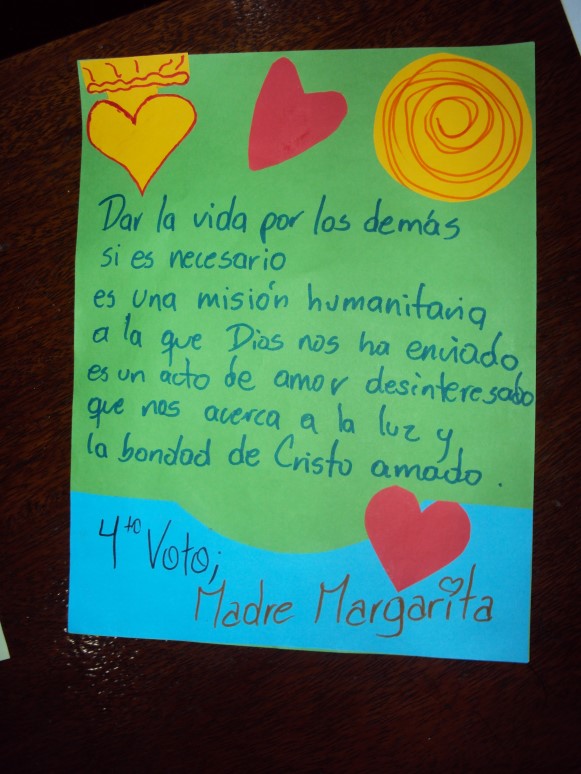 Dar la vida por los demás
si es necesario
es una misión humanitaria
a la que Dios nos ha enviado
es un acto de amor desinteresado
que nos acerca a la luz y
la bondad de Cristo amado.
4to Voto;
Madre Margarita